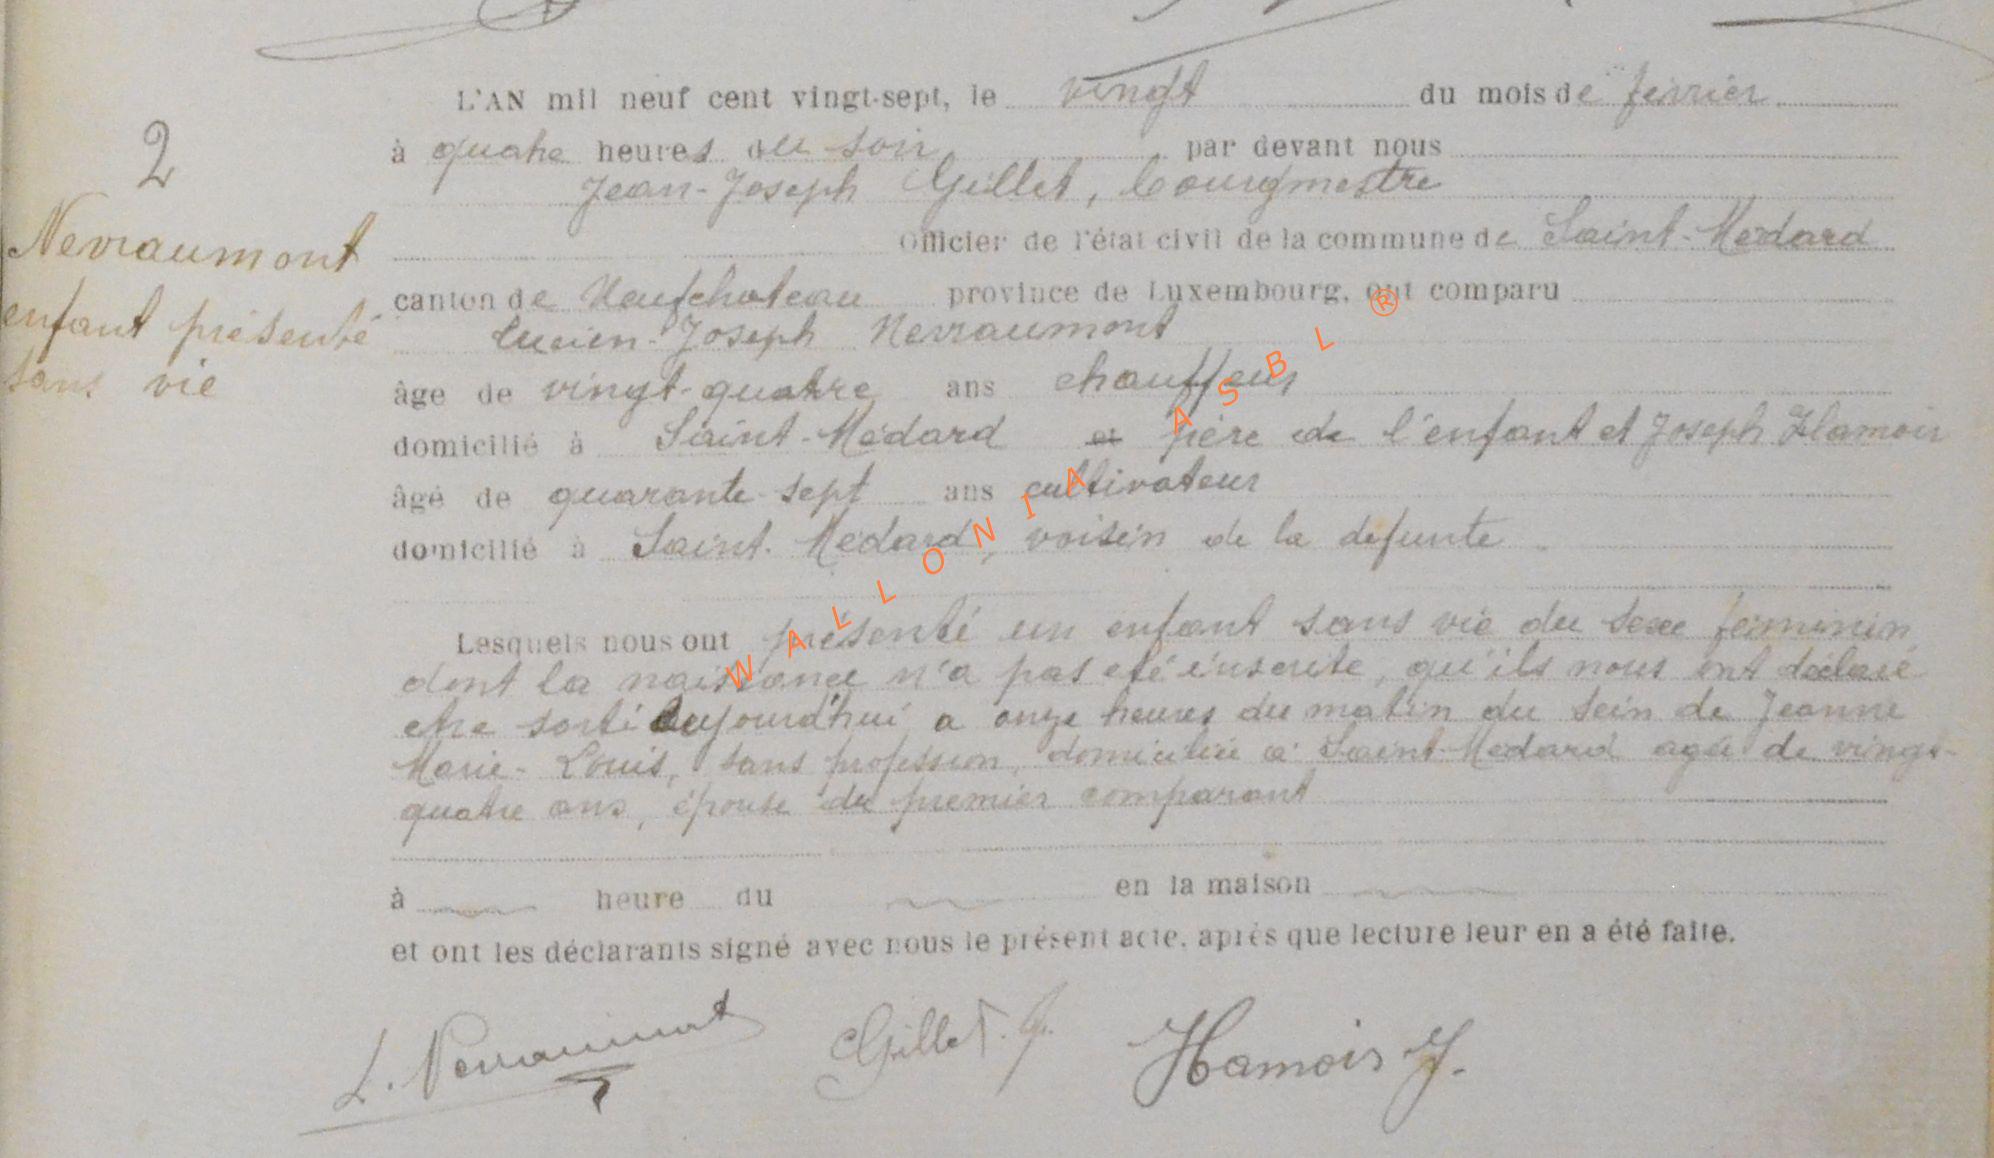 2
Nerraumont
enfant présenté
sans vie
L'AN mil neuf cent vingt-sept, le vingt du mois de février
à quatre heures du soir par devant nous
Jean-Joseph Gillet, bourgmestre
Officier de l'état civil de la commune de Saint-Médard
canton de Neufchateau province de Luxembourg, ont comparu
Lucien-Joseph Nerraumont
âge de vingt-quatre ans chauffeur
domicilié à Saint-Médard et père de l'enfant et Joseph Hamoir
âgé de quarante-sept ans cultivateur
domicilié à Saint-Médard, voisin de la defunte
Lesquels nous ont présenté un enfant sans vie du sexe féminin
dont la naissance n'a pas été inscrite, qu'ils nous ont déclaré
etre sorti aujourd'hui a onze heures du matin du sein de Jeanne
Marie-Louis, sans profession, domiciliée à Saint-Médard agée de vingt-
quatre ans, épouse du premier comparant
à heure du en la maison
et ont les déclarants signé avec nous le présent acte, après que lecture leur en a été faite.
L. Nerraumont Gillet. J. Hamoir J.
WALLONIA ASBL ®